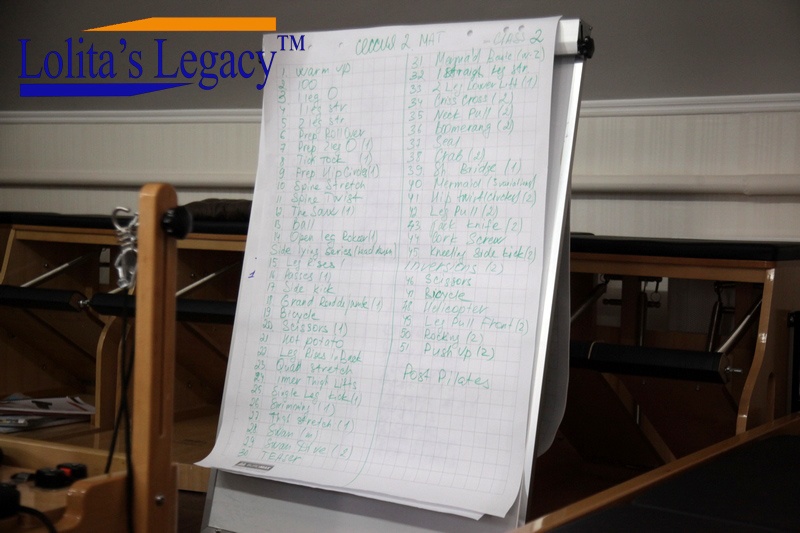 Lolita's Legacy™
2 MAT - Class 2
1 Warm up
2 100
3 1 leg O
4 1 leg str
5 2 leg str
6 Prep Roll over
7 Prep 2 leg O (1)
8 Tick Tock (1)
9 Prep Hip Circle (1)
10 Spine Stretch
11 Spine Twist
12 The Saw (1)
13 Ball
14 Open leg Rocker (1)
Side lying Series
15 Leg Rises
16 Passes (1)
17 Side kick
18 Grand Rond de Jambe (1)
19 Bicycle
20 Scissors (1)
21 Hot potato
22 Leg Rises in Beak
23 Quad stretch
24 Inner Thigh Lifts
25 Single Leg kick (1)
26 Swimming (1)
27 Thigh stretch (1)
28 Swan
29 Swan Dive (2)
30 TEASER
31
32 1 straight leg str
33 2 Leg Lower Lift (1)
34 Criss Cross (2)
35 Neck Pull (2)
36 Boomerang (2)
37 Seal
38 Crab (2)
39 Sh. Bridge (1)
40 Mermaid
41 Hip twist (circles) (2)
42 Leg Pull (2)
43 Jack knife (2)
44 Cork Screw
45 Kneeling Side kick (2)
Inversions (2)
46 Scissors
47 Bicycle
48 Helicopter
49 Leg Pull Front (2)
50 Rocking (2)
51 Push up (2)
Post Pilates